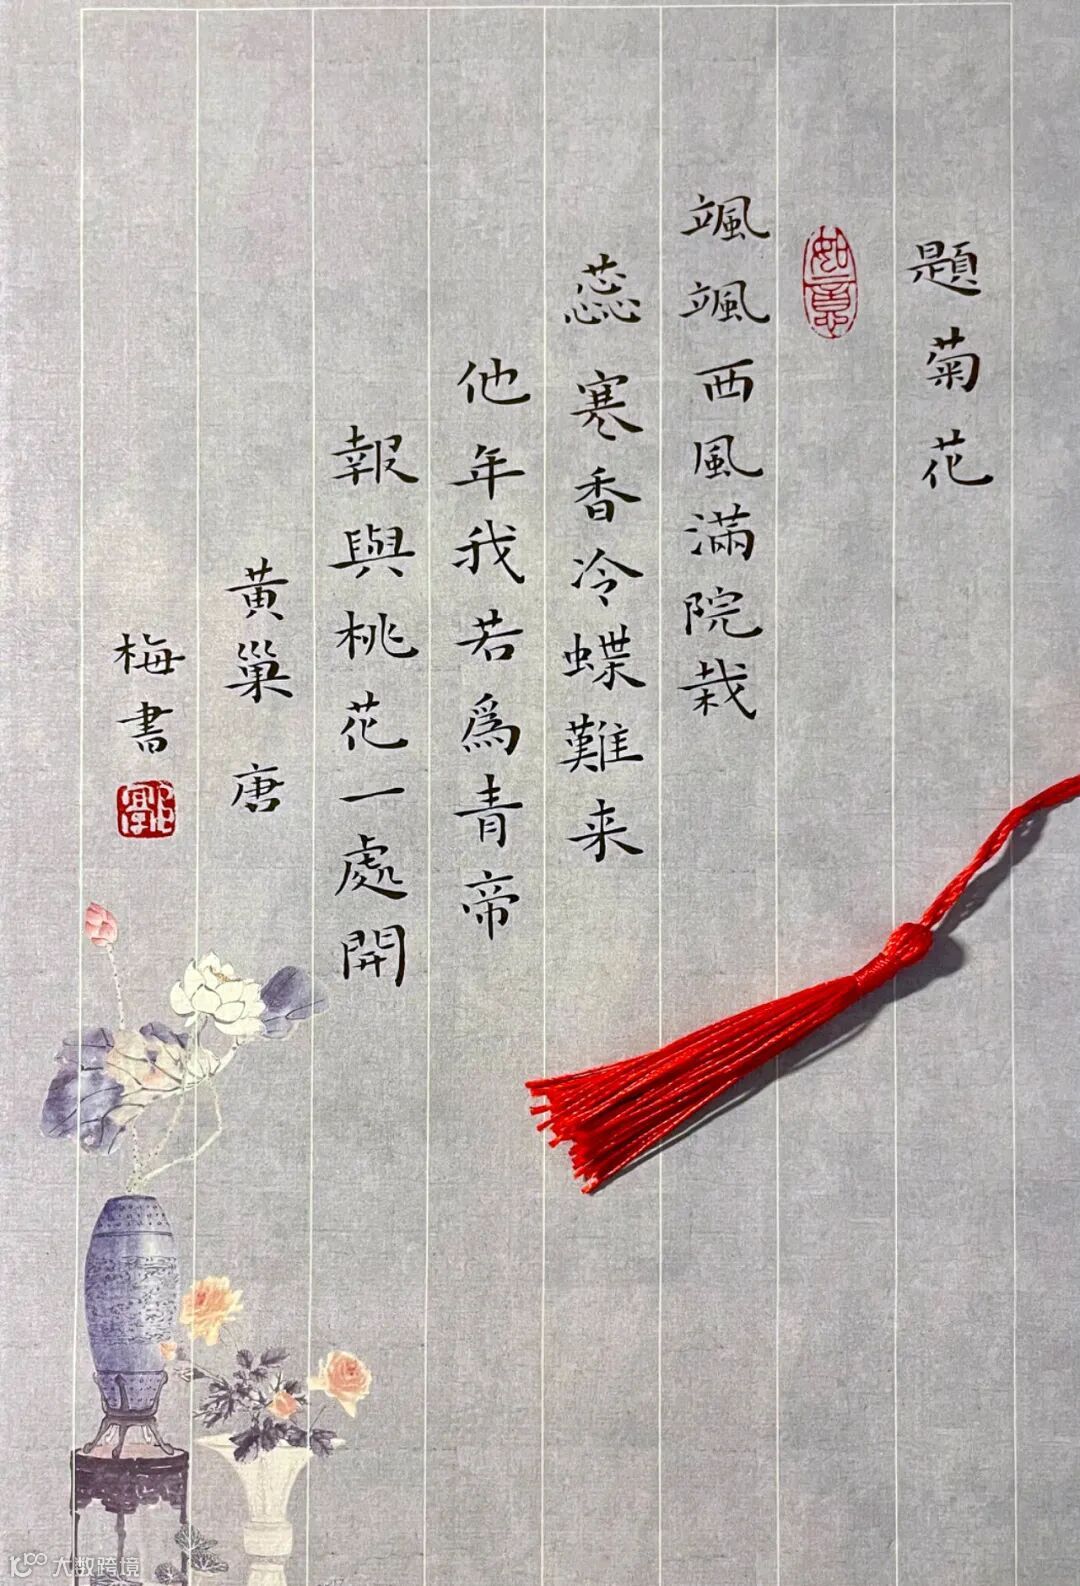 題菊花
如意
颯颯西風滿院栽
蕊寒香冷蝶難来
他年我若爲青帝
報與桃花一處開
黄巢 唐
梅書
郭
大数跨境